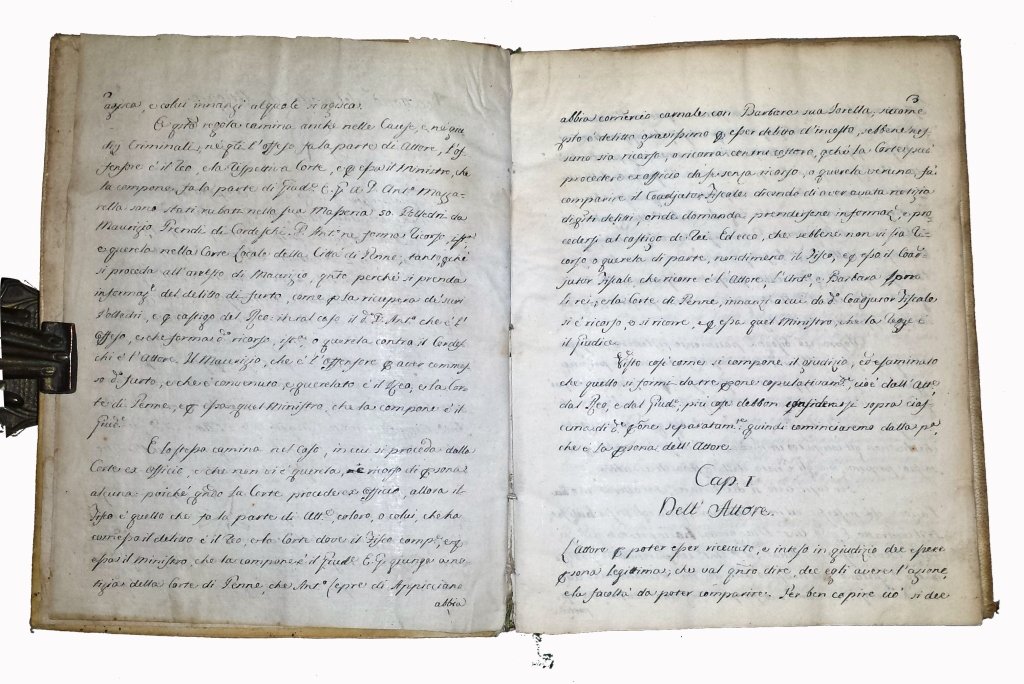 2
agisca, e colui innanzi al quale si agisca.
E q.sta regola camina anche nelle Cause, e ne giu
dizj Criminali, ne q.li l'offeso fa la parte di Attore, l'of
fensore è il Reo, e la rispettiva Corte, e p essa il Ministro, che
la compone fa la parte di Giud.e E. P. a D. Ant.o Mazza
rella sono stati rubati nella sua Masseria 30 Polledri da
Maurizio Prendi di Cordeschi. D. Ant.o ne forma ricorso,
e querela nella Corte Locale della Città di Penne; tanto
si proceda all'arresto di Maurizio, q.nto perchè si prenda
informaz.e del delitto di furto, come p la ricupera de' suoi
Polledri, e p castigo del Reo: in tal caso il d.o D. Ant.o che è l'
offeso, e che forma d.o ricorso, o querela contra il Cordes
chi è l'Attore. Il Maurizio, che è l'offensore p aver commes
so d.o furto, e che è convenuto, e querelato è il Reo, e la Cor
te di Penne, e p essa quel Ministro, che la compone è il
Giud.e
E lo stesso camina nel caso, in cui si proceda dalla
Corte ex officio, e che non vi è querela, nè ricorso di psona
alcuna poichè q.ndo la Corte procede ex officio, allora il
Fisco è quello che fa la parte di Att.e, coloro, o colui, che ha
commesso il delitto è il reo, e la Corte dove il Fisco comp.e, e p
essa il Ministro, che la compone è il Giud.e E. G. giunge a no
tizia della Corte di Penne, che Ant.o Lepre di Appicciano
abbia
3
abbia comercio carnale con Barbara sua Sorella, siccome
q.sto è delitto gravissimo p esser delitto d'incesto, sebbene nes
suno sia ricorso, o ricorra contra costoro, pchè la Corte può
procedere ex officio da se senza ricorso, o querela veruna, fa
comparire il Coadjutor Fiscale dicendo di aver avuta notizia
di q.sti delitti, onde domanda prendersene informaz.e, e pro
cedersi al castigo di Rei Ed ecco, che sebbene non vi sia ri
corso, o querela di parte, nondimeno il Fisco, e p esso il Coad
jutor Fiscale che ricorre è l'Attore, l'Ant.o, e Barbara sono
li rei; e la Corte di Penne, innanzi a cui da d.o Coadjutor Fiscale
si è ricorso, o si ricorre, e p essa quel Ministro, che la regge è
il Giudice.
Visto così come si compone il giudizio, ed esaminato
che quello si formi da tre psone copulativam.e, cioè dall'Att.e
dal Reo, e dal Giud.e, più cose debbon considerarsi sopra cias
cuna di d.e psone separatam.e quindi cominciaremo dalla p.a,
che è la psona dell'Attore.
Cap. I
Dell'Attore.
L'Attore p poter esser ricevuto, e inteso in giudizio dee essere
psona legittima; che val q.nto dire, dee egli avere l'azione,
e la facoltà da poter comparire. Per ben capire ciò si dee